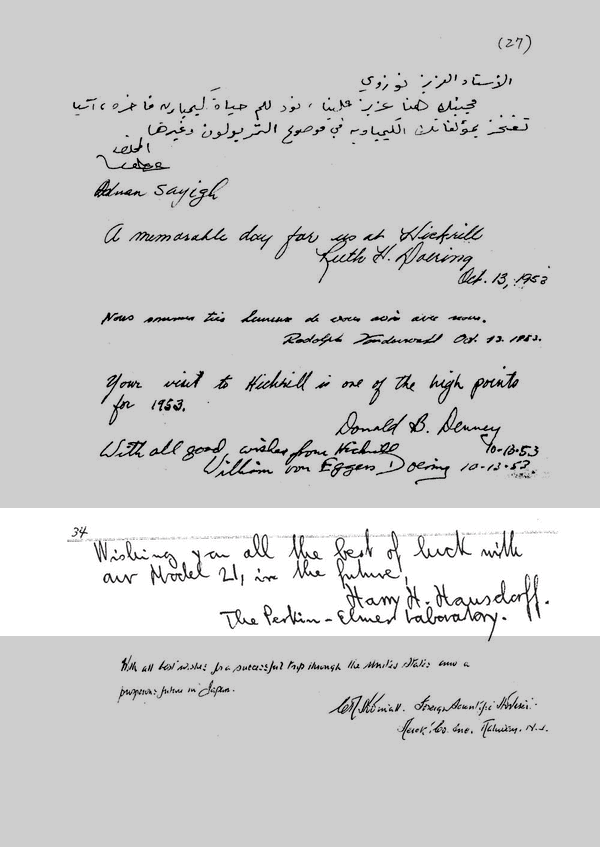 (27)
الأستاذ العزيز نوزوي
مجيئك هنا عزيز علينا ، نود لكم حياة كيمياوية فاخرة ، آسيا
تفتخر بمؤلفاتك الكيمياوية في موضوع التروبولون وغيرها
المخلص
Adnan Sayigh
A memorable day for us at Hickrill
Ruth H. Doering
Oct. 13, 1953
Nous sommes très heureux de vous avoir avec nous.
Rudolph Oct. 13. 1953.
Your visit to Hickrill is one of the high points
for 1953.
Donald B. Denney
10-13-53
With all good wishes from Hickrill
William von Eggers Doering 10-13-53
34
Wishing you all the best of luck with
our Model 21, in the future!
Harry H. Hausdorff.
The Perkin-Elmer Laboratory.
With all best wishes for a successful trip through the United States and a
prosperous future in Japan.
Foreign Scientific
Merck & Co. Inc. Rahway, N.J.